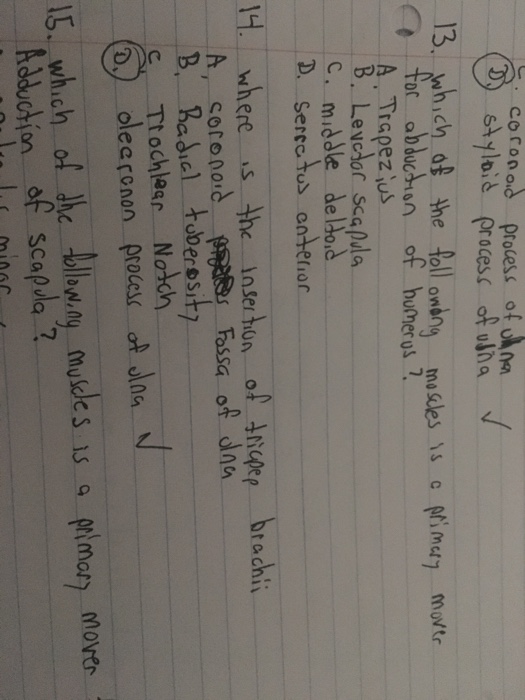 C. coronoid process of ulna
D. styloid process of ulna ✓
13. which of the following muscles is a primary mover
for abduction of humerus?
A. Trapezius
B. Levator scapula
C. middle deltoid
D. serratus anterior
14. where is the insertion of tricpep brachii
A. coronoid Fossa of ulna
B. Radial tuberosity
C Trochlear Notch
D. olecranon process of ulna ✓
15. which of the following muscles is a primary mover
Adduction of scapula?
minor